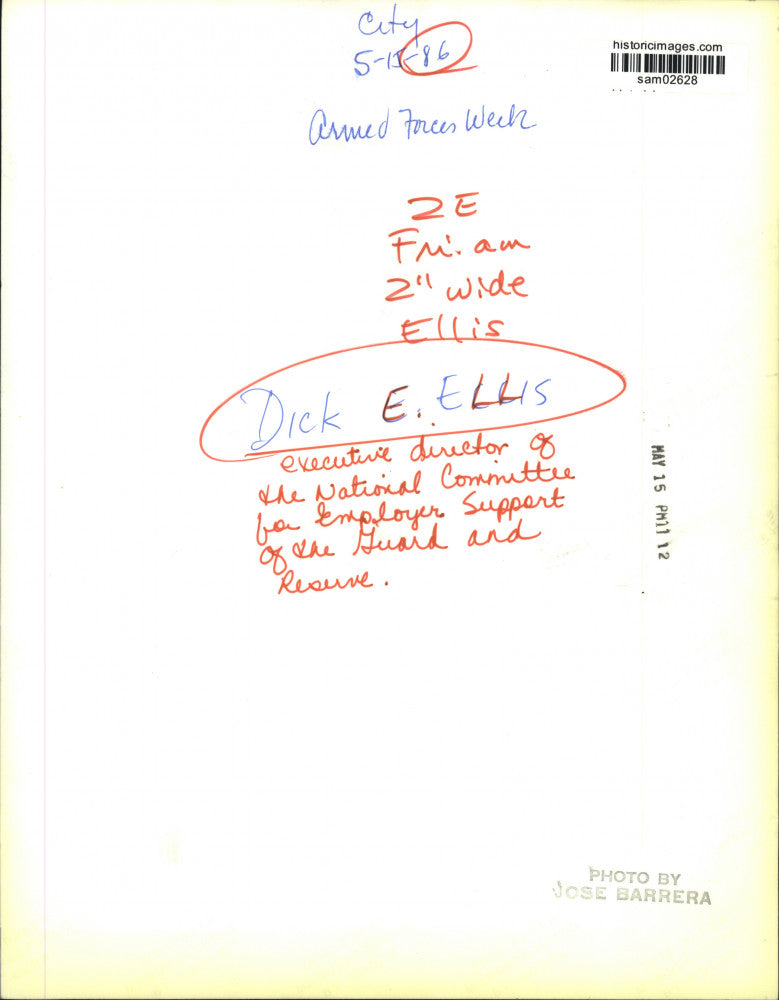 City
5-15-86
historicimages.com
sam02628
Armed Forces Week
2E
Fri. am
2" wide
Ellis
Dick E. ELLIS
executive director of
the National Committee
for Employer Support
of the Guard and
Reserve.
MAY 15 PM11 12
PHOTO BY
JOSE BARRERA